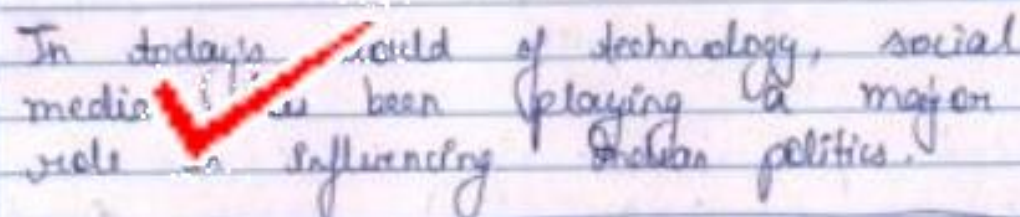 In today's world of technology, social
media has been playing a major
role in influencing Indian politics.